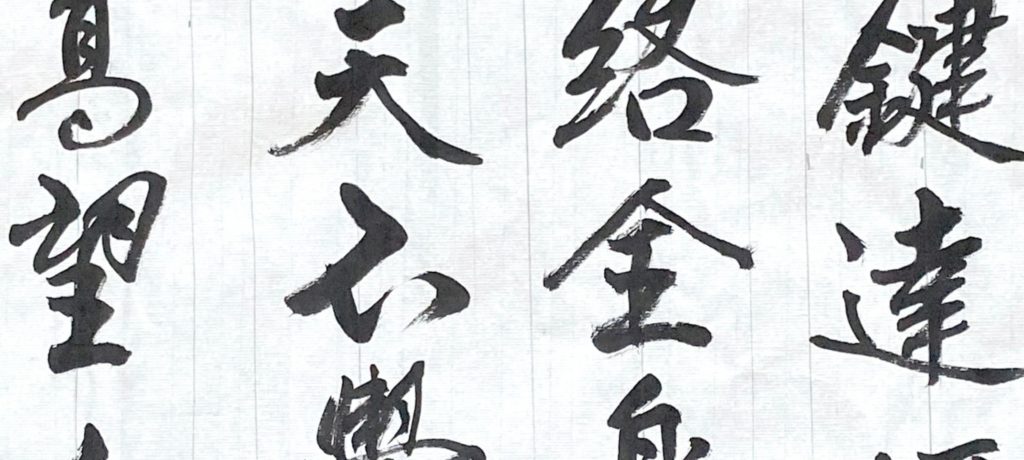 鍵達
絡全
天不
高望